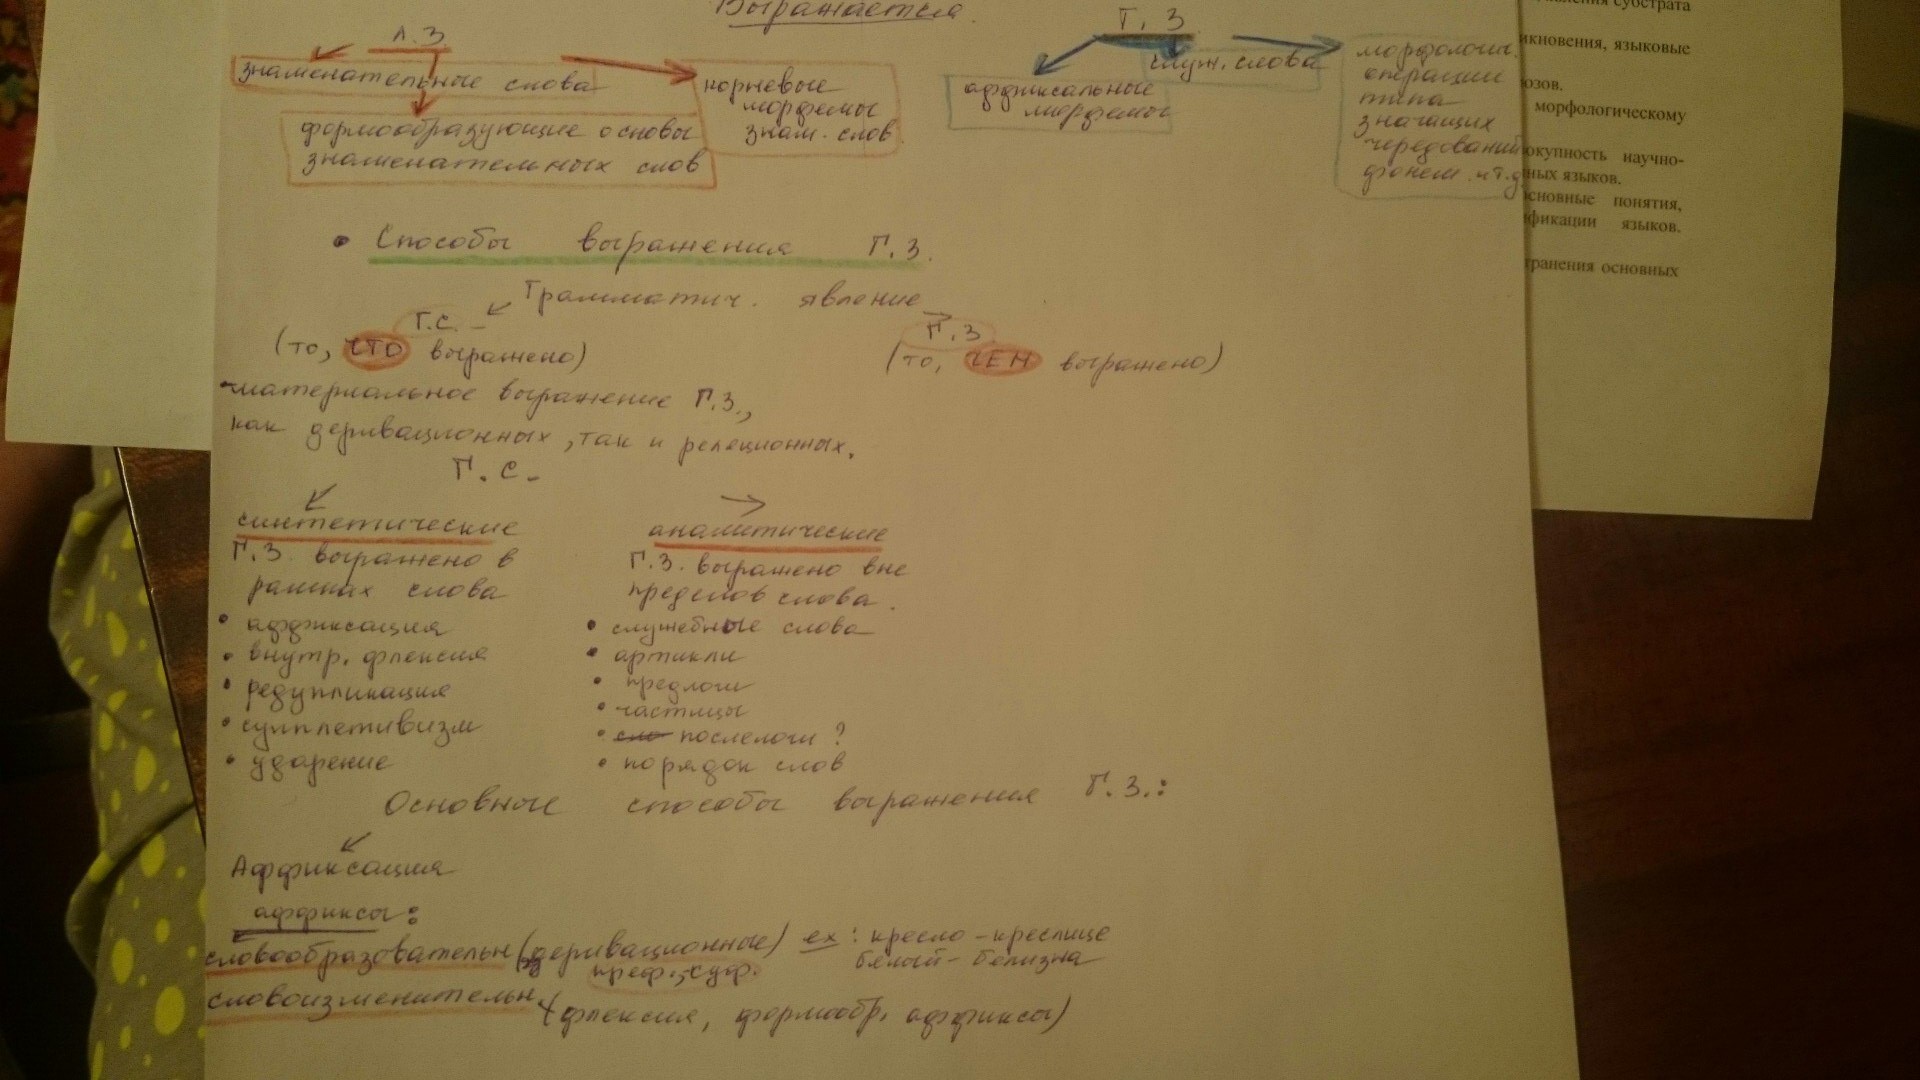 Выражается
Л.З
Г.З
знаменательные слова
корневые
морфемы
знам. слов
формообразующие основы
знаменательных слов
аффиксальные
морфемы
служ. слова
морфологич.
операции
типа
значащих
чередований
фонем и т.д.
субстрата
языковые
морфологическому
научно-
языков.
понятия,
языков.
основных
• Способы выражения Г.З.
Грамматич. явление
Г.С. –
Г.З
(то, ЧТО выражено)
(то, ЧЕМ выражено)
материальное выражение Г.З.,
как деривационных, так и реляционных.
Г.С. –
синтетические
Г.З. выражено в
рамках слова
• аффиксация
• внутр. флексия
• редупликация
• супплетивизм
• ударение
аналитические
Г.З. выражено вне
пределов слова.
• служебные слова
• артикли
• предлоги
• частицы
• послелоги ?
• порядок слов
Основные способы выражения Г.З.:
Аффиксация
аффиксы:
словообразовательн (деривационные) ex: кресло – креслице
преф., суф. белый – белизна
словоизменительн. (флексия, формообр. аффиксы)